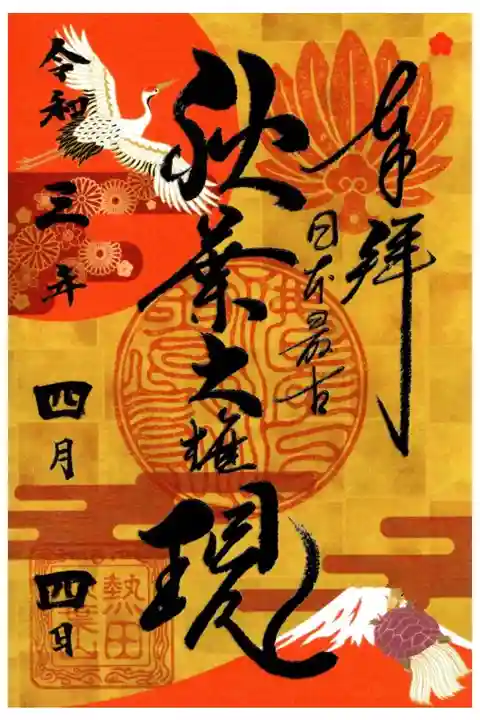 奉拝
日本最古
秋葉大権現
令和三年
四月四日
熱田